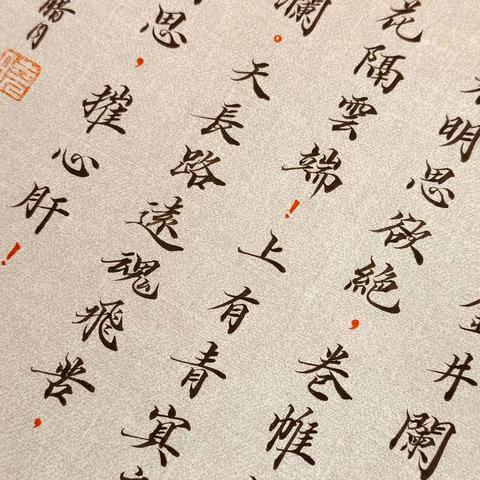 金井闌
明思欲絕，卷帷
花隔雲端！上有青冥
瀾。天長路遠魂飛苦，
思，摧心肝！